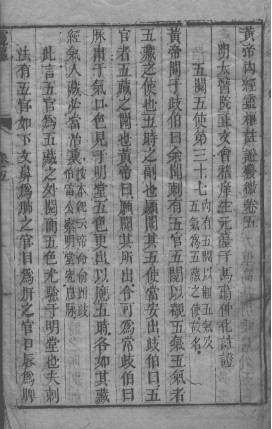 黃帝內經靈樞註證發微卷五
明太醫院正文會稽庠生元臺子馬蒔仲化註證
五閱五使第三十七 內有五閱以觀五氣及五氣為五藏之使故名
黃帝問于歧伯曰余聞刺有五官五閱以觀五氣五氣者
五藏之使也五時之副也願聞其五使當安出歧伯曰五
官者五藏之閱也黃帝曰願聞其所出令可為常歧伯曰
脉出于氣口色見于明堂五色更出以應五時各如其藏
經氣入藏必當治裏
此言五官為五藏之外閱而五色驗于明堂也夫刺
法有五官如下文鼻為肺之官目為肝之官口唇為脾